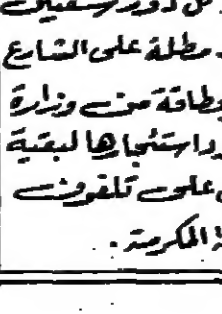 مطلة على الشارع
بطاقة من وزارة
واستئجارها لبقية
على تلفون
المكرمة .